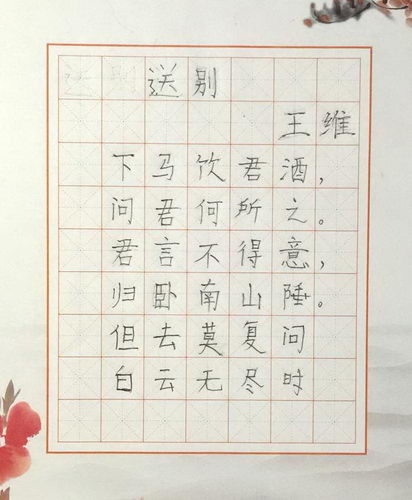 送别
王维
下马饮君酒，
问君何所之。
君言不得意，
归卧南山陲。
但去莫复问
白云无尽时